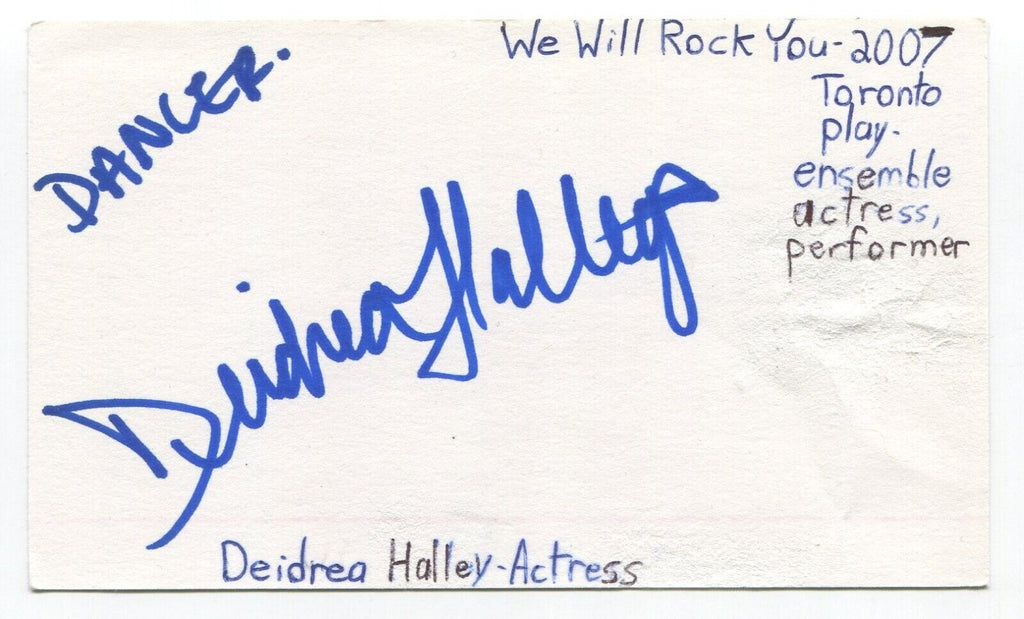 DANCER.
We Will Rock You-2007
Toronto
play-
ensemble
actress,
performer
Deidrea Halley
Deidrea Halley-Actress